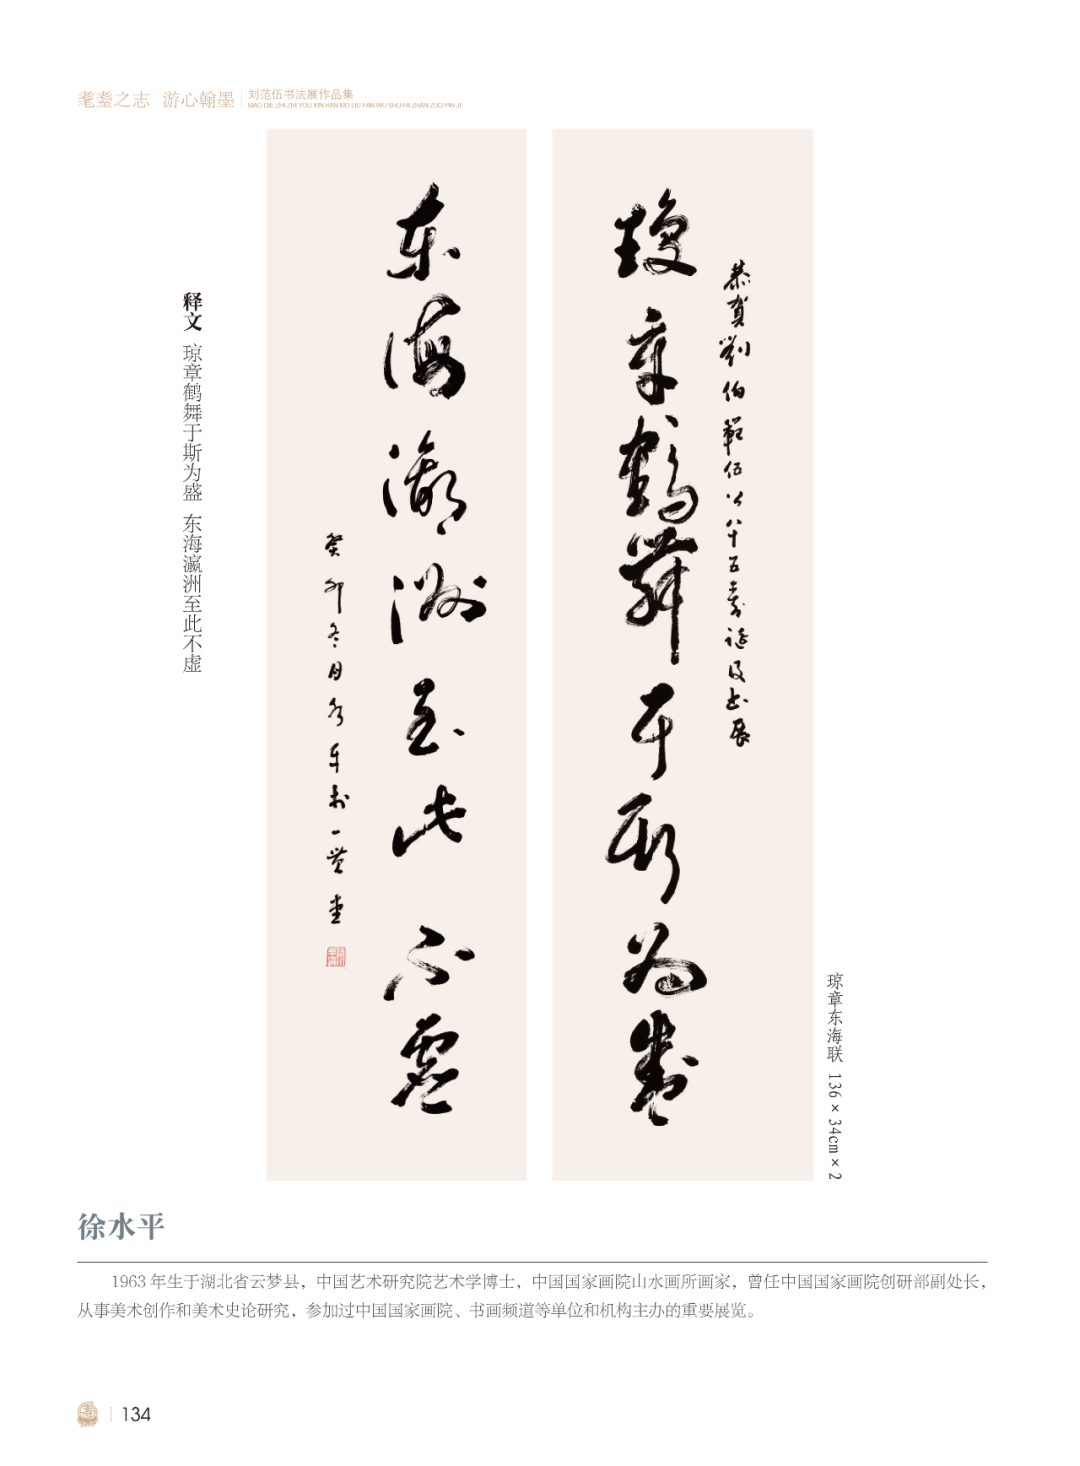 耄耋之志 游心翰墨
刘范伍书法展作品集
MAO DIE ZHI ZHI YOU XIN HAN MO LIU FAN WU SHU FA ZHAN ZUO PIN JI
恭贺劉伯範伍公八十五寿诞及书展
琼章鹤舞于斯为盛
东海瀛洲至此不虚
癸卯冬月水平书一堂
释文 琼章鹤舞于斯为盛 东海瀛洲至此不虚
琼章东海联 136×34cm×2
徐水平
1963年生于湖北省云梦县，中国艺术研究院艺术学博士，中国国家画院山水画所画家，曾任中国国家画院创研部副处长，
从事美术创作和美术史论研究，参加过中国国家画院、书画频道等单位和机构主办的重要展览。
134